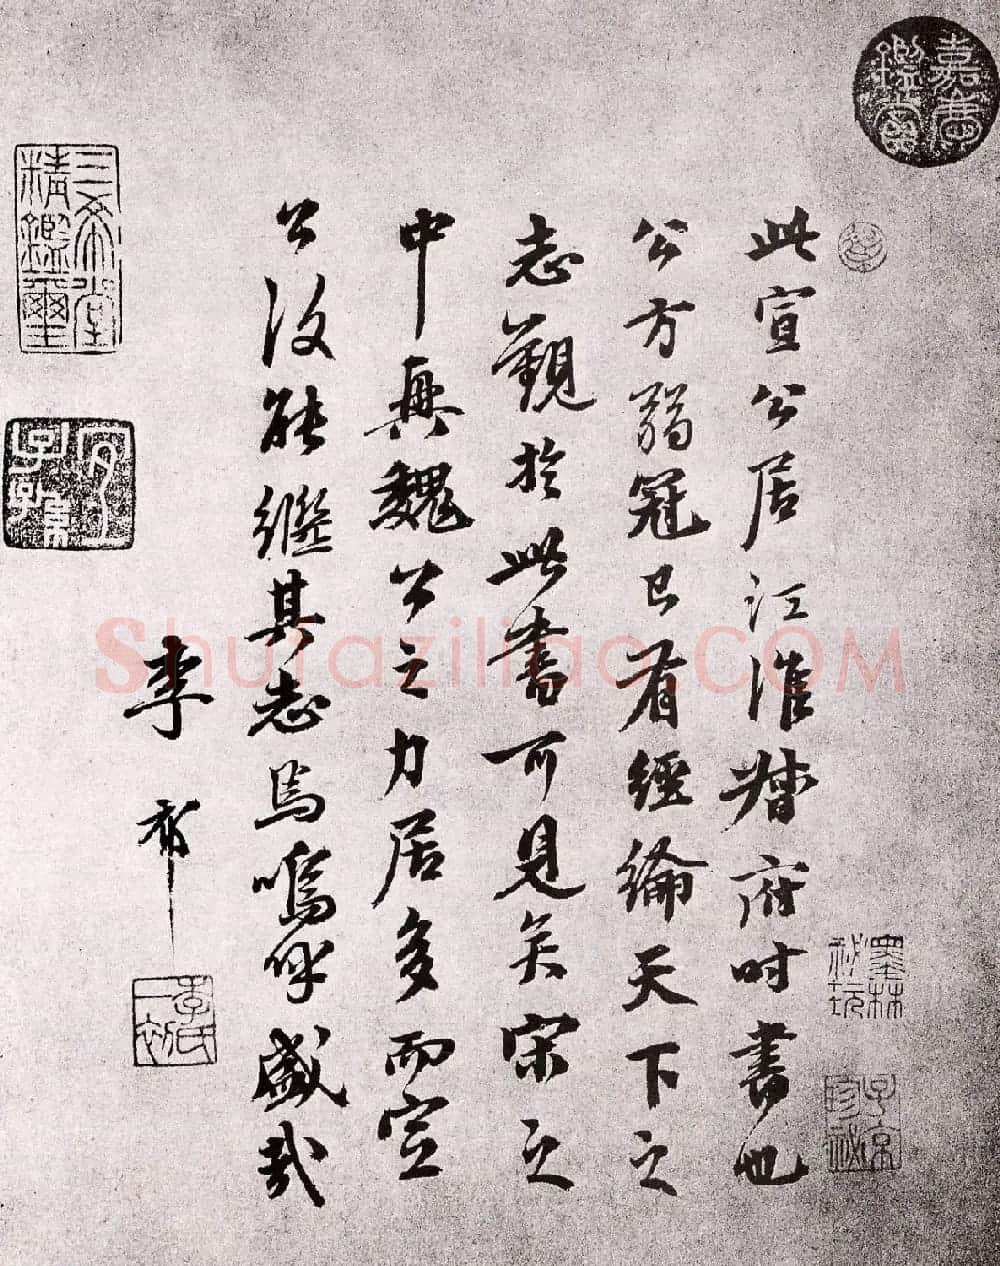 此宣公居江淮糟府时書也
公方弱冠已有經綸天下之
志觀於此書可見矣宋之
中興魏公之力居多而宣
公復能繼其志焉嗚呼盛哉
李祁
嘉慶鑑賞
三希堂精鑑璽
宜子孫
李氏一初
墨林祕玩
子京珍祕
Shufaziliao.COM